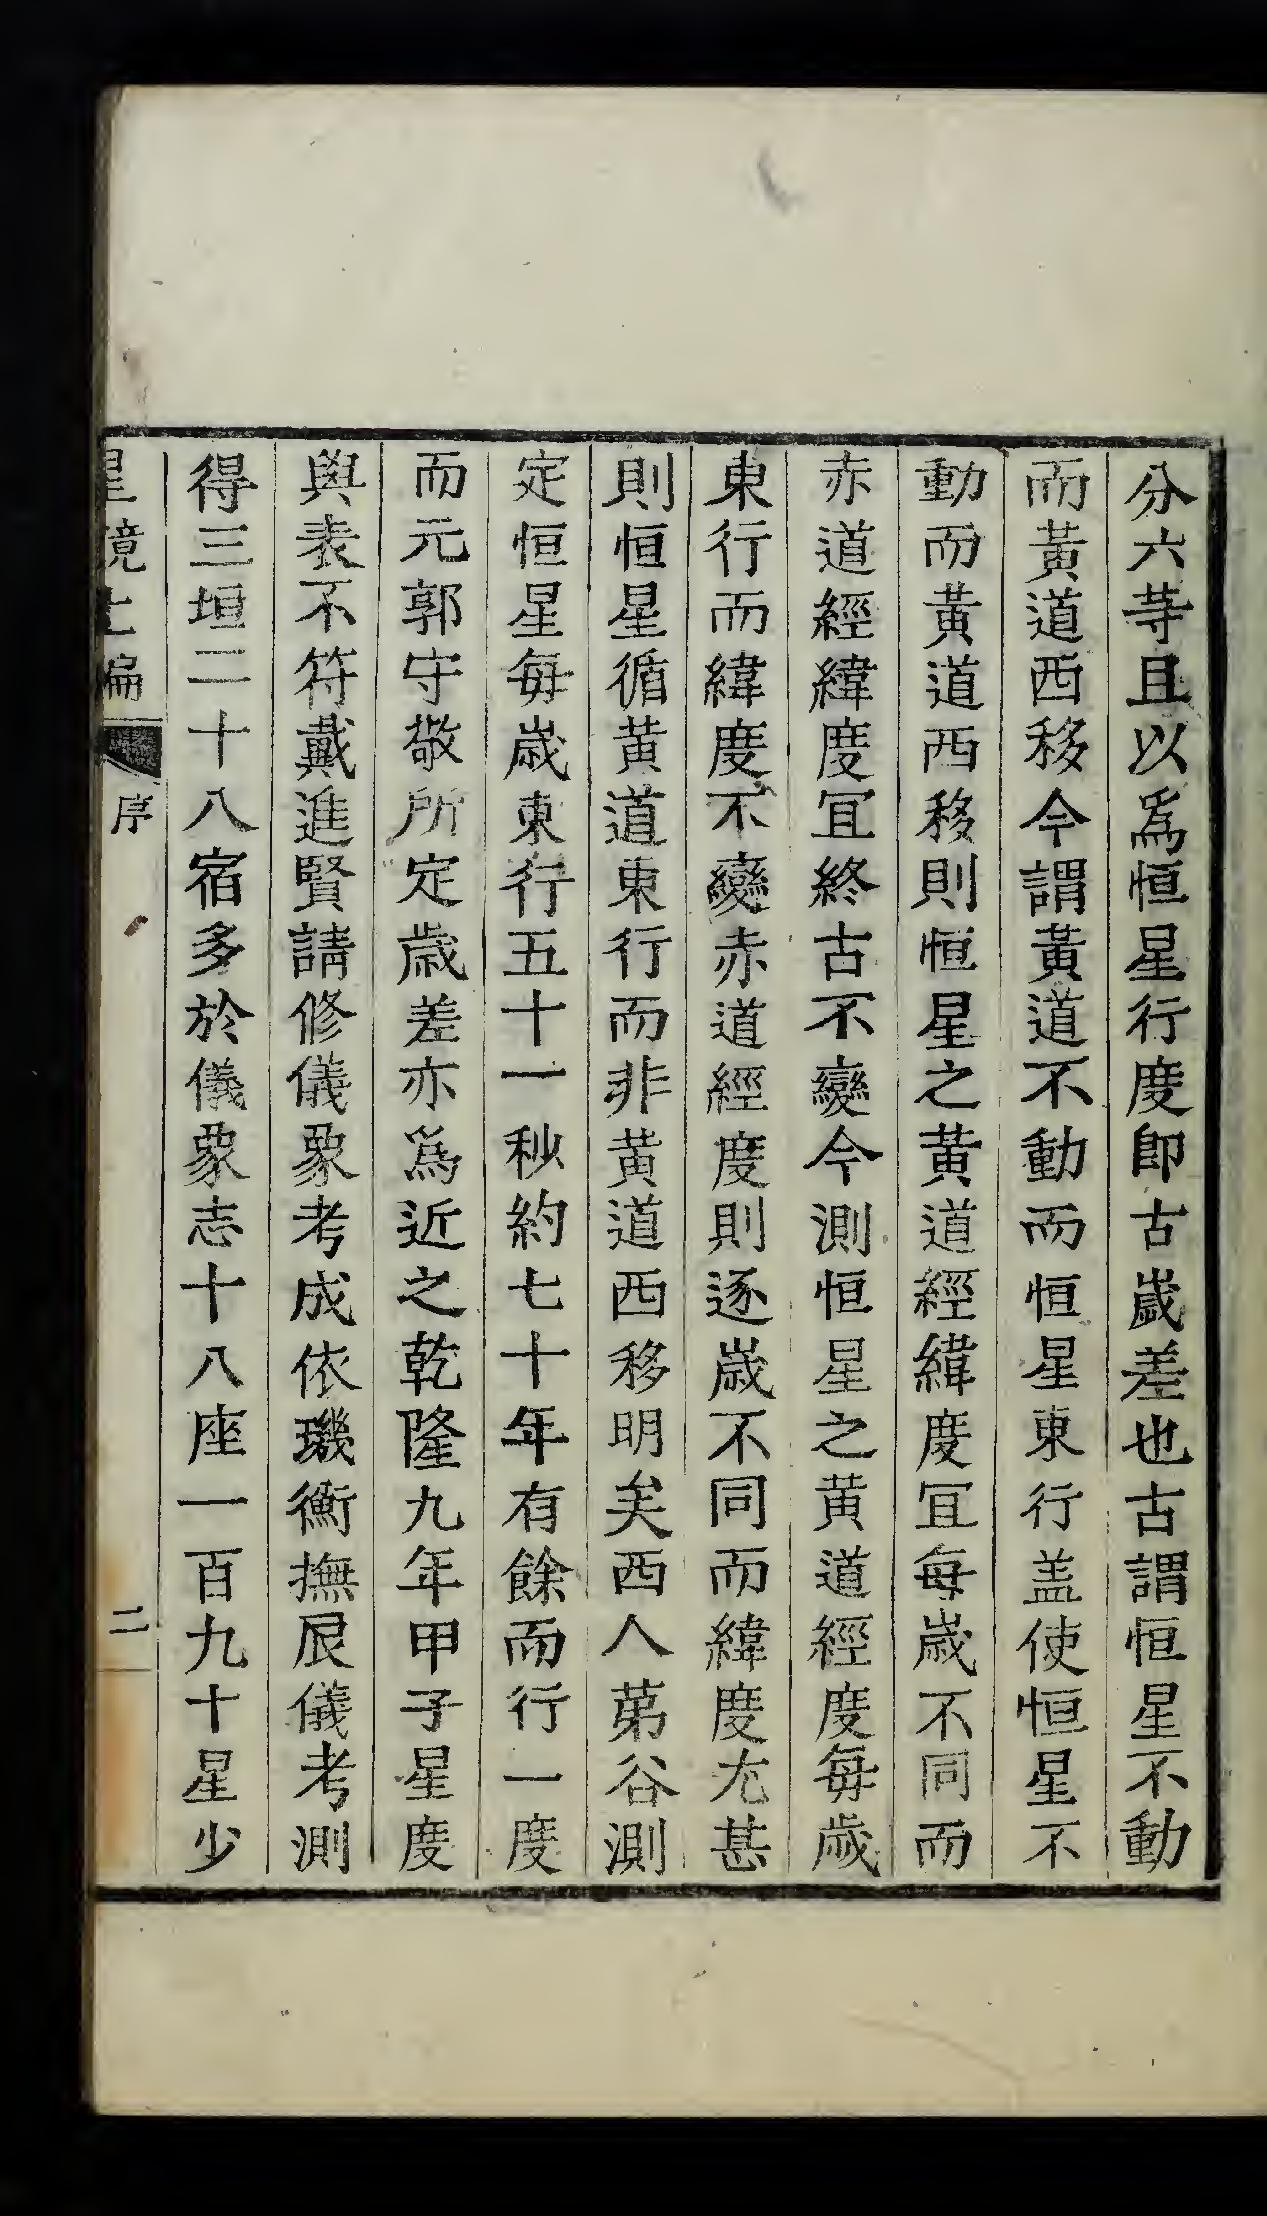 分六等且以爲恒星行度即古歲差也古謂恒星不動
而黃道西移今謂黃道不動而恒星東行盖使恒星不
動而黃道西移則恒星之黃道經緯度宜每歲不同而
赤道經緯度宜終古不變今測恒星之黃道經度每歲
東行而緯度不變赤道經度則逐歲不同而緯度尤甚
則恒星循黃道東行而非黃道西移明矣西人苐谷測
定恒星每歲東行五十一秒約七十年有餘而行一度
而元郭守敬所定歲差亦爲近之乾隆九年甲子星度
與表不符戴進賢請修儀象考成依璣衡撫辰儀考測
得三垣二十八宿多於儀象志十八座一百九十星少
星鏡上編
序
二